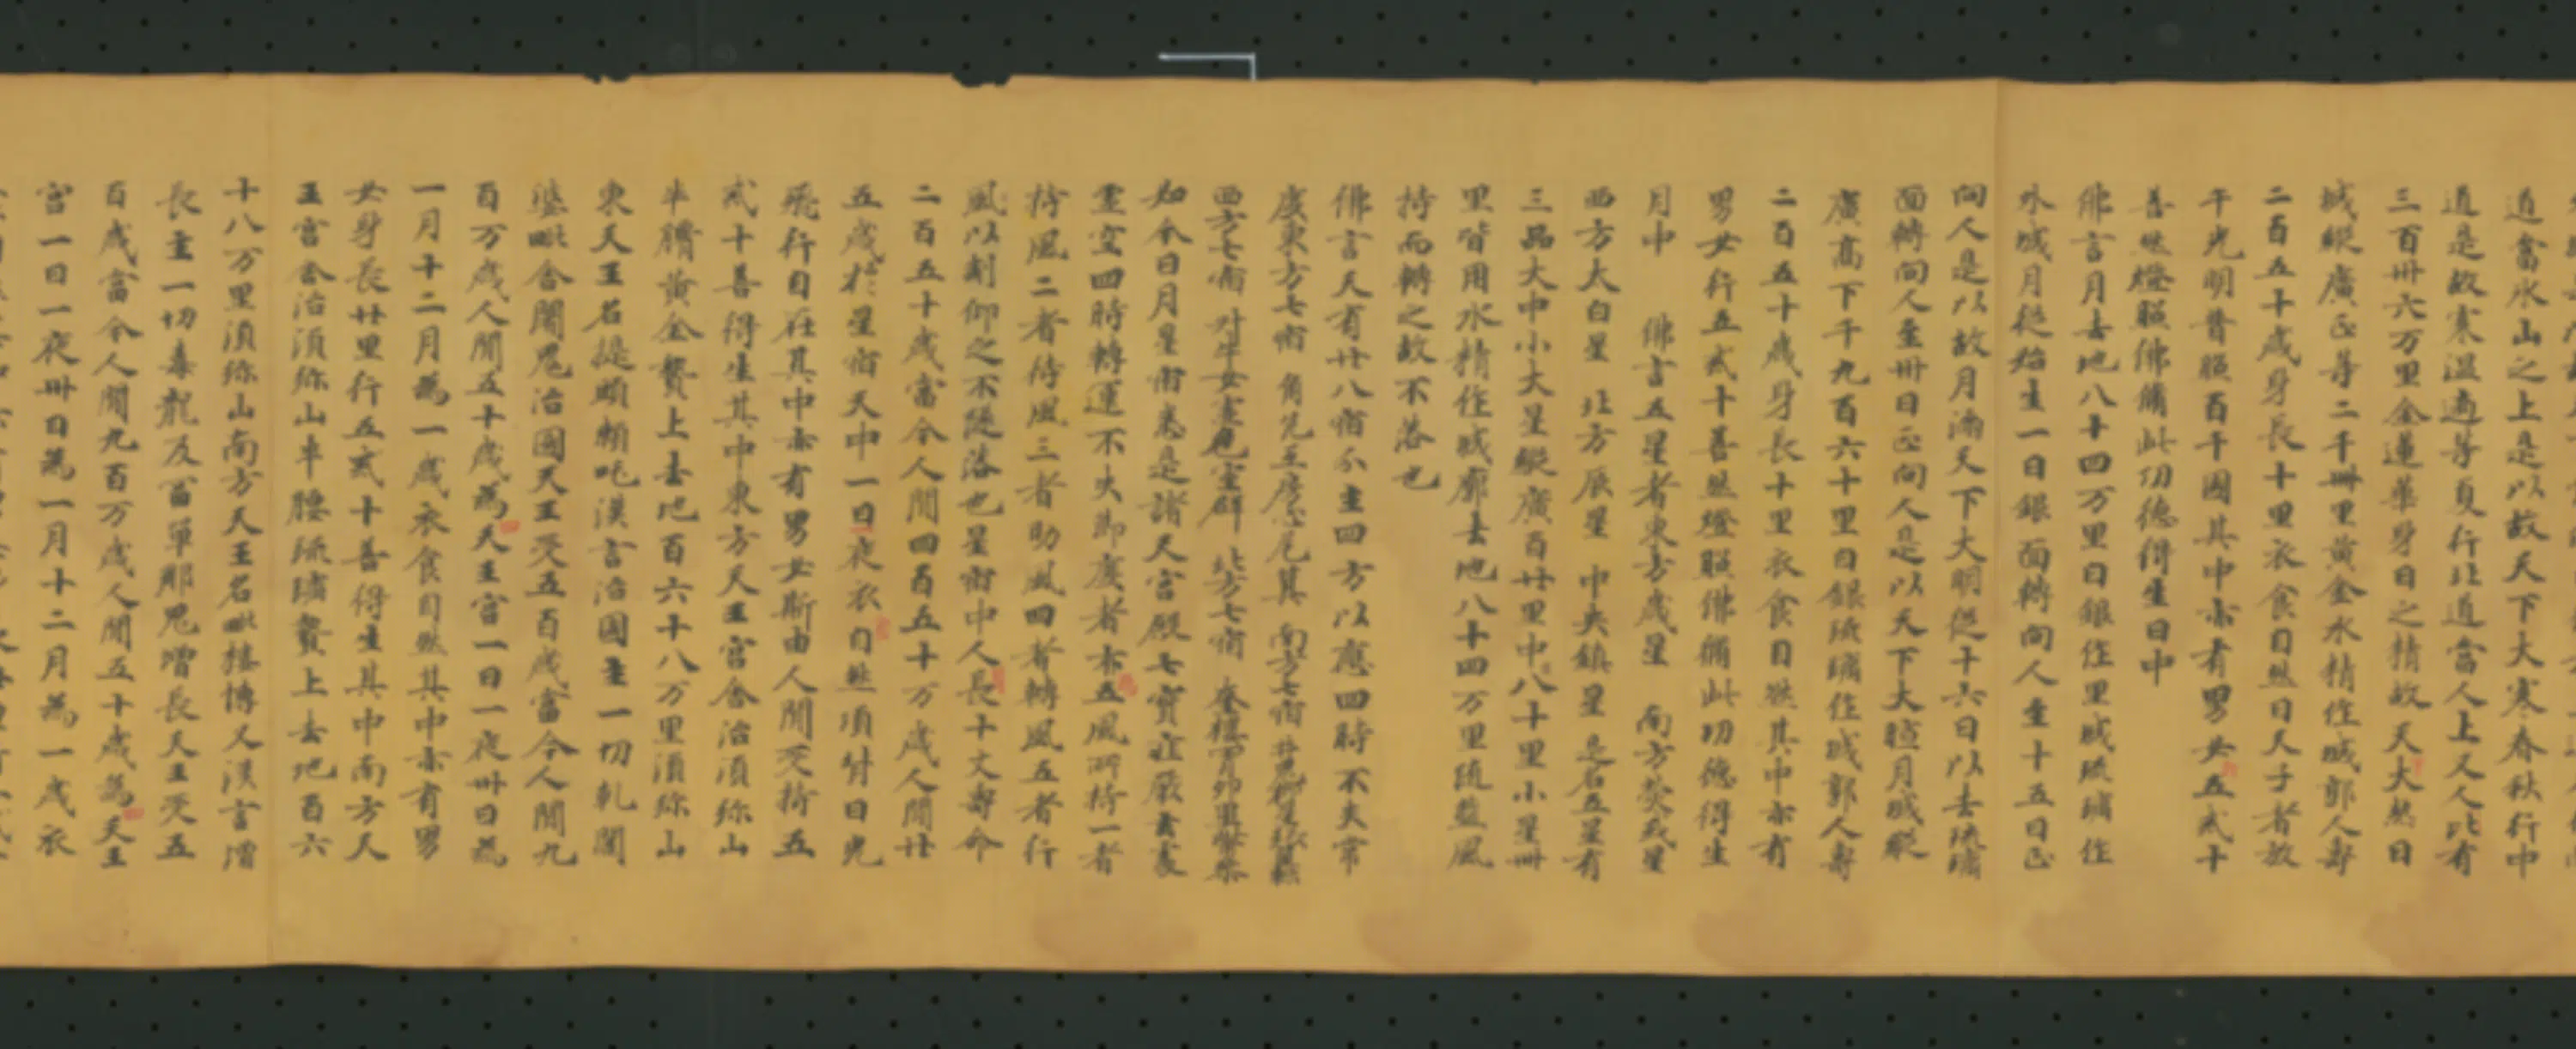 道當氷山之上是以故天下大寒春秋行中
道是故寒温適等夏行北道當人上又人北有
三百卌六万里金蓮華身日之精故天大熱日
城縱廣正等二千卌里黄金水精作城郭人壽
二百五十歳身長十里衣食自然日天子者放
千光明普照百千國其中亦有男女五戒十
善燃燈照佛縁此功德得生日中
佛言月去地八十四万里白銀作里城琉璃作
外城月從始生一日銀面轉向人至十五日正
向人是以故月滿天下大明從十六日以去琉璃
面轉向人至卅日正向人是以天下大暗月城縱
廣高下千九百六十里白銀琉璃作城郭人壽
二百五十歳身長十里衣食自然其中亦有
男女行五戒十善燃燈照佛縁此功德得生
月中 佛言五星者東方歳星 南方熒惑星
西方大白星 北方辰星 中央鎮星 是名五星有
三品大中小大星縱廣百廿里中八十里小星卌
里皆用水精作城廓去地八十四万里随藍風
持而轉之故不落也
佛言天有廿八宿分主四方以應四時不失常
度東方七宿 角亢互房心尾箕 南方七宿 井鬼柳星張翼
西方七宿 斗牛女虚危室辟 北方七宿 奎樓胃卯畢觜参
如今日月星宿悉是諸天宮殿七寶莊嚴去表
靈空四時轉運不失節度者亦五風所持一者
持風二者待風三者助風四者轉風五者行
風以制御之不墮落也星宿中人長十丈壽命
二百五十歳當今人間四百五十万歳人間廿
五歳於星宿天中一日夜衣自然項付日光
飛行自在其中亦有男女斯由人間受持五
戒十善得生其中東方天王宮舍治須弥山
半臍黄金臺上去地百六十八万里須弥山
東天王名提頭頼吒漢言治國主一切軋闥
婆毗舍闍鬼治國天王受五百歳當今人間九
百万歳人間五十歳為天王宮一日一夜卅日為
一月十二月為一歳衣食自然其中亦有男
女身長廿里行五戒十善得生其中南方天
王宮舍治須弥山半腰琉璃臺上去地百六
十八万里須弥山南方天王名毗樓博又漢言増
長主一切毒龍及富單那鬼増長天王受五
百歳當今人間九百万歳人間五十歳為天王
宮一日一夜卅日為一月十二月為一歳衣